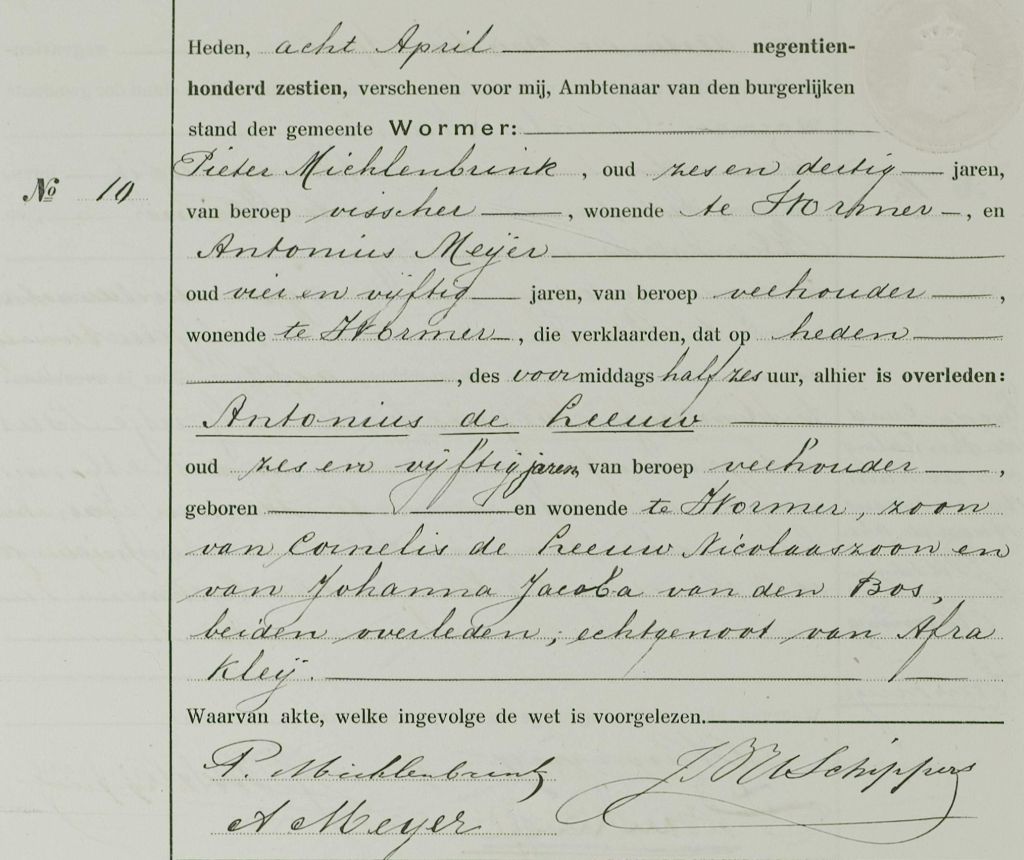 Heden, acht April negentien-
honderd zestien, verschenen voor mij, Ambtenaar van den burgerlijken
stand der gemeente Wormer:
Pieter Michlenbrink, oud zes en dertig jaren,
№ 10
van beroep visscher, wonende te Wormer, en
Antonius Meijer
oud vier en vijftig jaren, van beroep veehouder,
wonende te Wormer, die verklaarden, dat op heden
, des voormiddags half zes uur, alhier is overleden:
Antonius de Leeuw
oud zes en vijftig jaren, van beroep veehouder,
geboren en wonende te Wormer, zoon
van Cornelis de Leeuw Nicolaaszoon en
van Johanna Jacoba van den Bos,
beiden overleden, echtgenoot van Afra
Kleij.
Waarvan akte, welke ingevolge de wet is voorgelezen.
P. Michlenbrink
Schippers
A Meyer